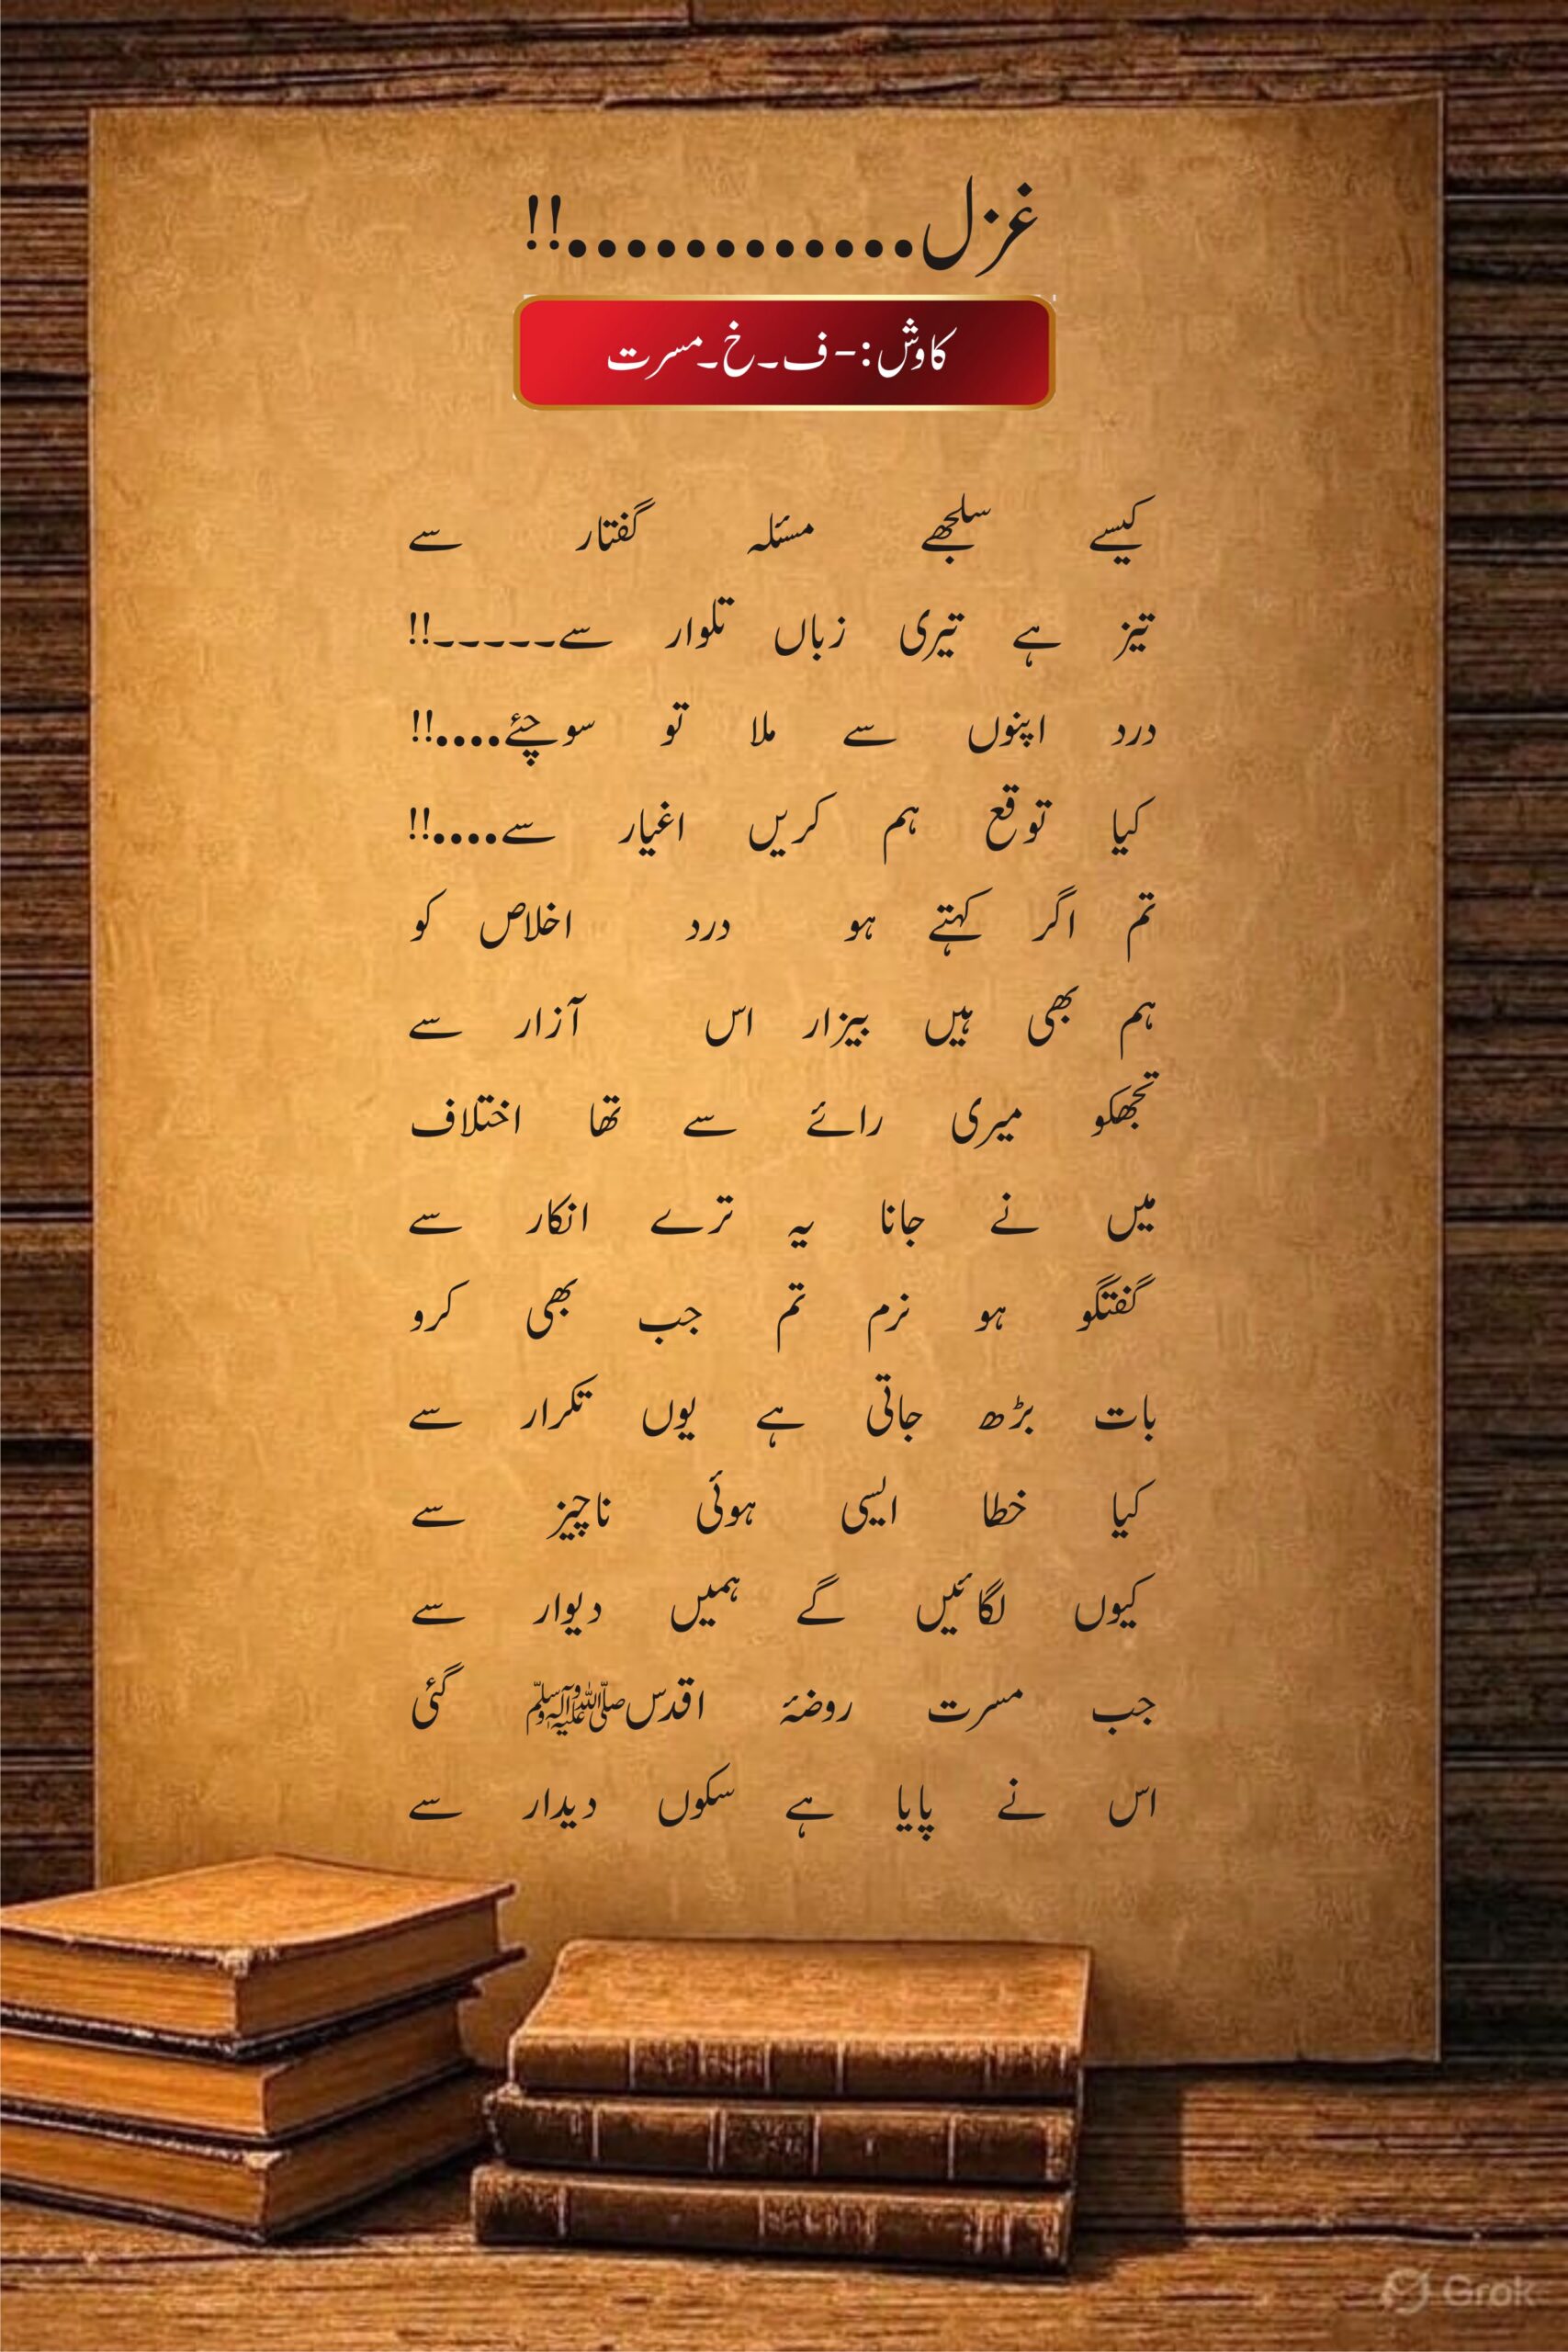 غزل............!!
کاوش:-ف۔خ۔مسرت
کیسے سلجھے مسئلہ گفتار سے
تیز ہے تیری زباں تلوار سے-----!!
درد اپنوں سے ملا تو سوچئے....!!
کیا توقع ہم کریں اغیار سے....!!
تم اگر کہتے ہو درد اخلاص کو
ہم بھی ہیں بیزار اس آزار سے
تجھکو میری رائے سے تھا اختلاف
میں نے جانا یہ ترے انکار سے
گفتگو ہو نرم تم جب بھی کرو
بات بڑھ جاتی ہے یوں تکرار سے
کیا خطا ایسی ہوئی ناچیز سے
کیوں لگائیں گے ہمیں دیوار سے
جب مسرت روضۂ اقدسﷺ گئی
اس نے پایا ہے سکوں دیدار سے
Grok